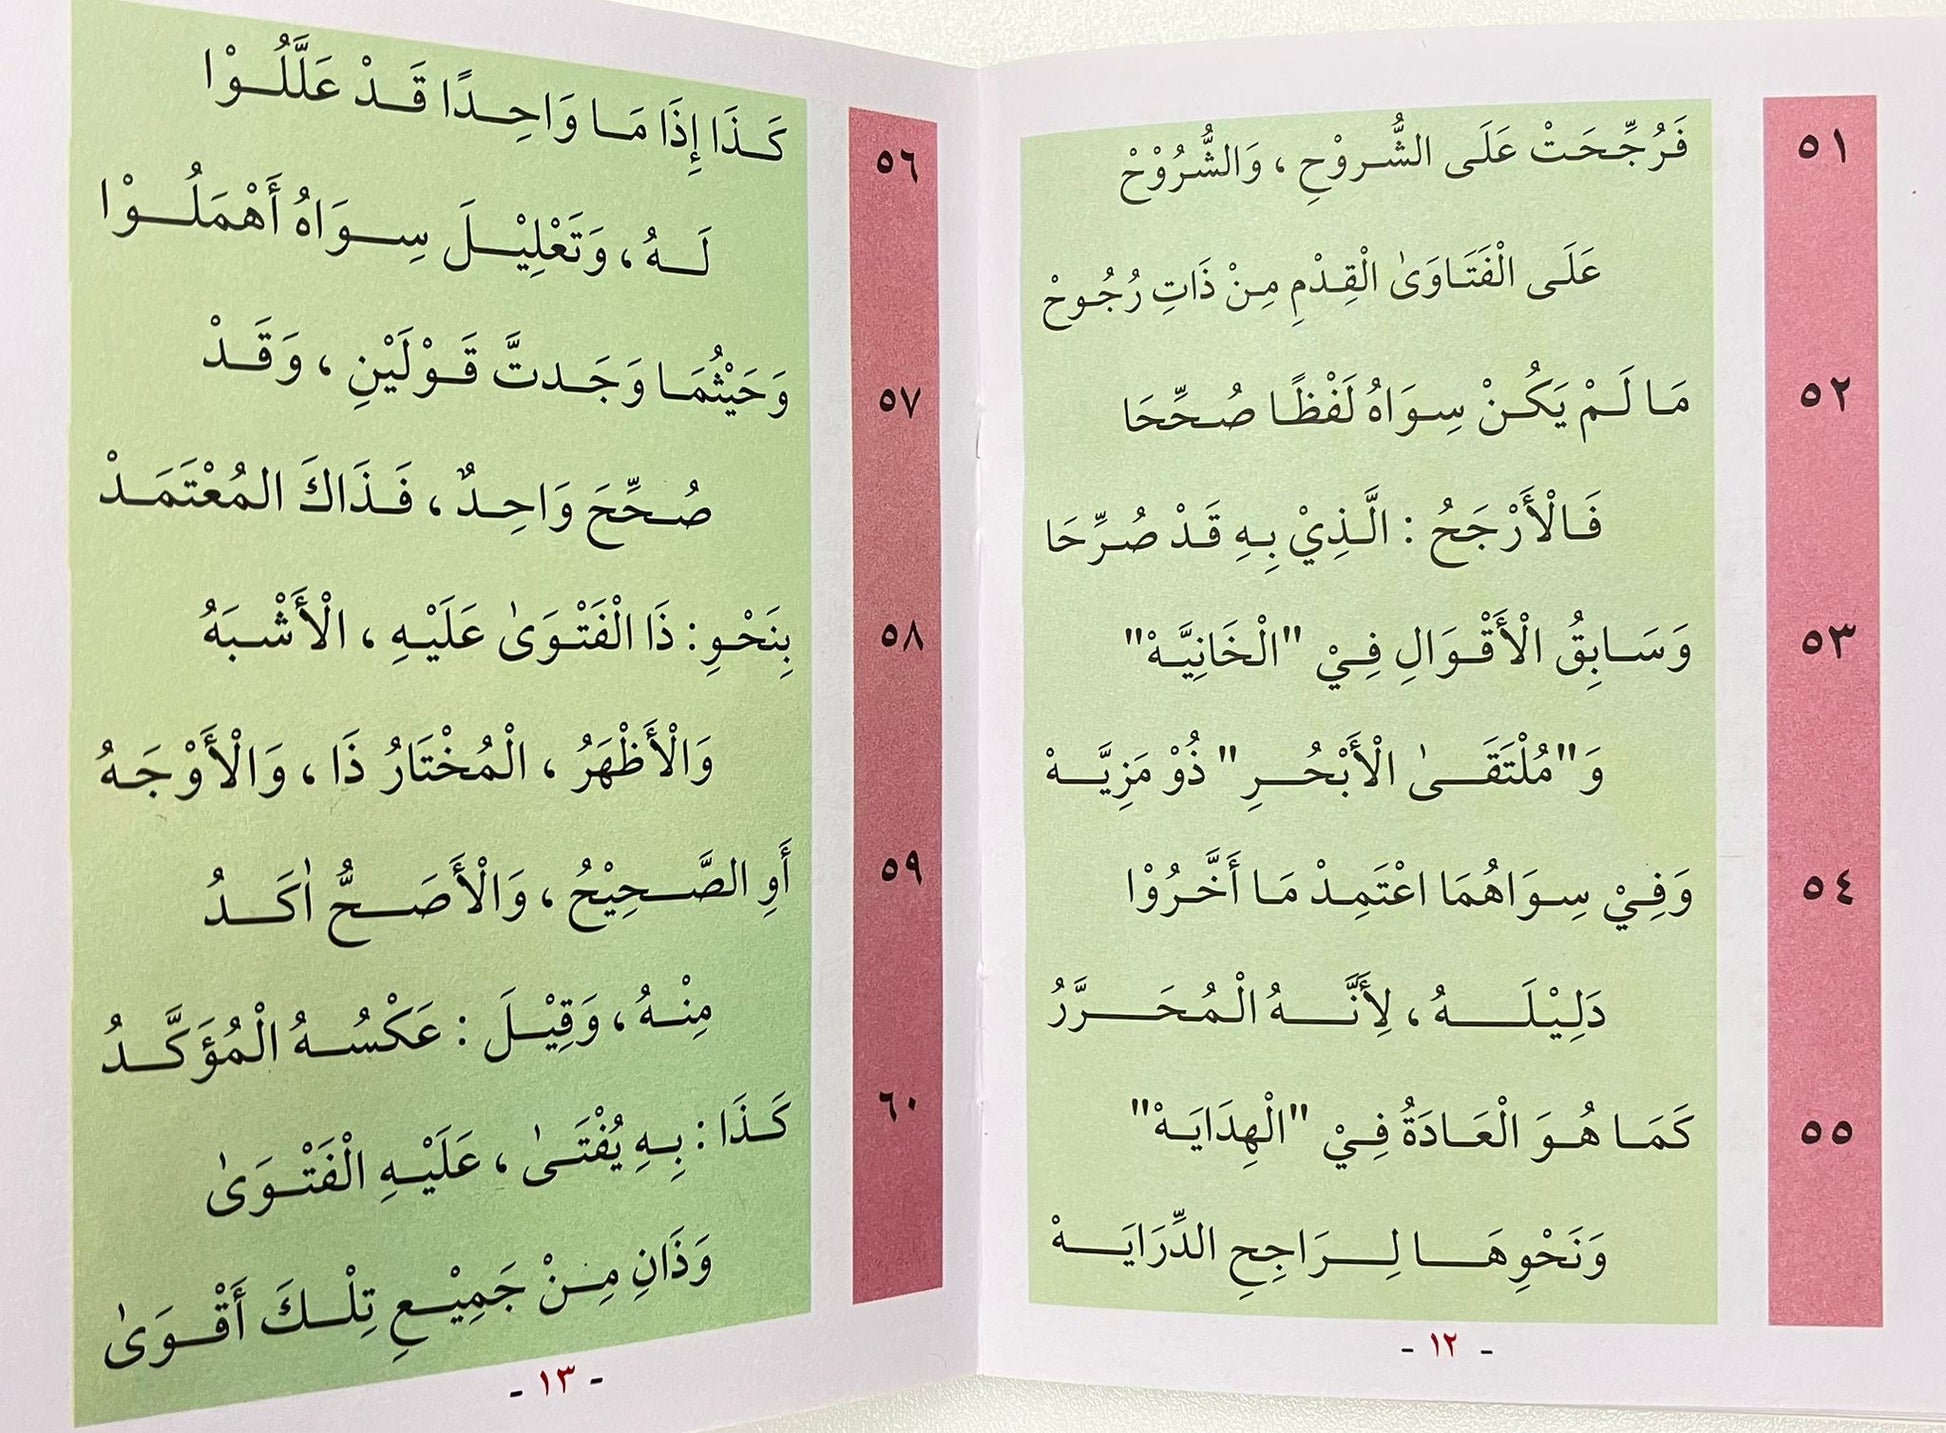 ٥١
فَرُجِّحَتْ عَلَى الشُّرُوْحِ ، وَالشُّرُوْحْ
عَلَى الْفَتَاوَىٰ الْقِدْمِ مِنْ ذَاتِ رُجُوحْ
٥٢
مَا لَمْ يَكُنْ سِوَاهُ لَفْظًا صُحِّحَا
فَالْأَرْجَحُ : الَّذِيْ بِهِ قَدْ صُرِّحَا
٥٣
وَسَابِقُ الْأَقْوَالِ فِيْ "الْخَانِيَّهْ"
وَ"مُلْتَقَىٰ الْأَبْحُرِ" ذُوْ مَزِيَّهْ
٥٤
وَفِيْ سِوَاهُمَا اعْتَمِدْ مَا أَخَّرُوْا
دَلِيْلَهُ ، لِأَنَّهُ الْمُحَرَّرُ
٥٥
كَمَا هُوَ الْعَادَةُ فِيْ "الْهِدَايَهْ"
وَنَحْوِهَا لِرَاجِحِ الدِّرَايَهْ
- ١٢ -
٥٦
كَذَا إِذَا مَا وَاحِدًا قَدْ عَلَّلُوْا
لَهُ ، وَتَعْلِيْلَ سِوَاهُ أَهْمَلُوْا
٥٧
وَحَيْثُمَا وَجَدتَّ قَوْلَيْنِ ، وَقَدْ
صُحِّحَ وَاحِدٌ ، فَذَاكَ المُعْتَمَدْ
٥٨
بِنَحْوِ : ذَا الْفَتْوَىٰ عَلَيْهِ ، الْأَشْبَهُ
وَالْأَظْهَرُ ، الْمُخْتَارُ ذَا ، وَالْأَوْجَهُ
٥٩
أَوِ الصَّحِيْحُ ، وَالْأَصَحُّ اٰكَدُ
مِنْهُ ، وَقِيْلَ : عَكْسُهُ الْمُؤَكَّدُ
٦٠
كَذَا : بِهِ يُفْتَىٰ ، عَلَيْهِ الْفَتْوَىٰ
وَذَانِ مِنْ جَمِيْعِ تِلْكَ أَقْوَىٰ
- ١٣ -